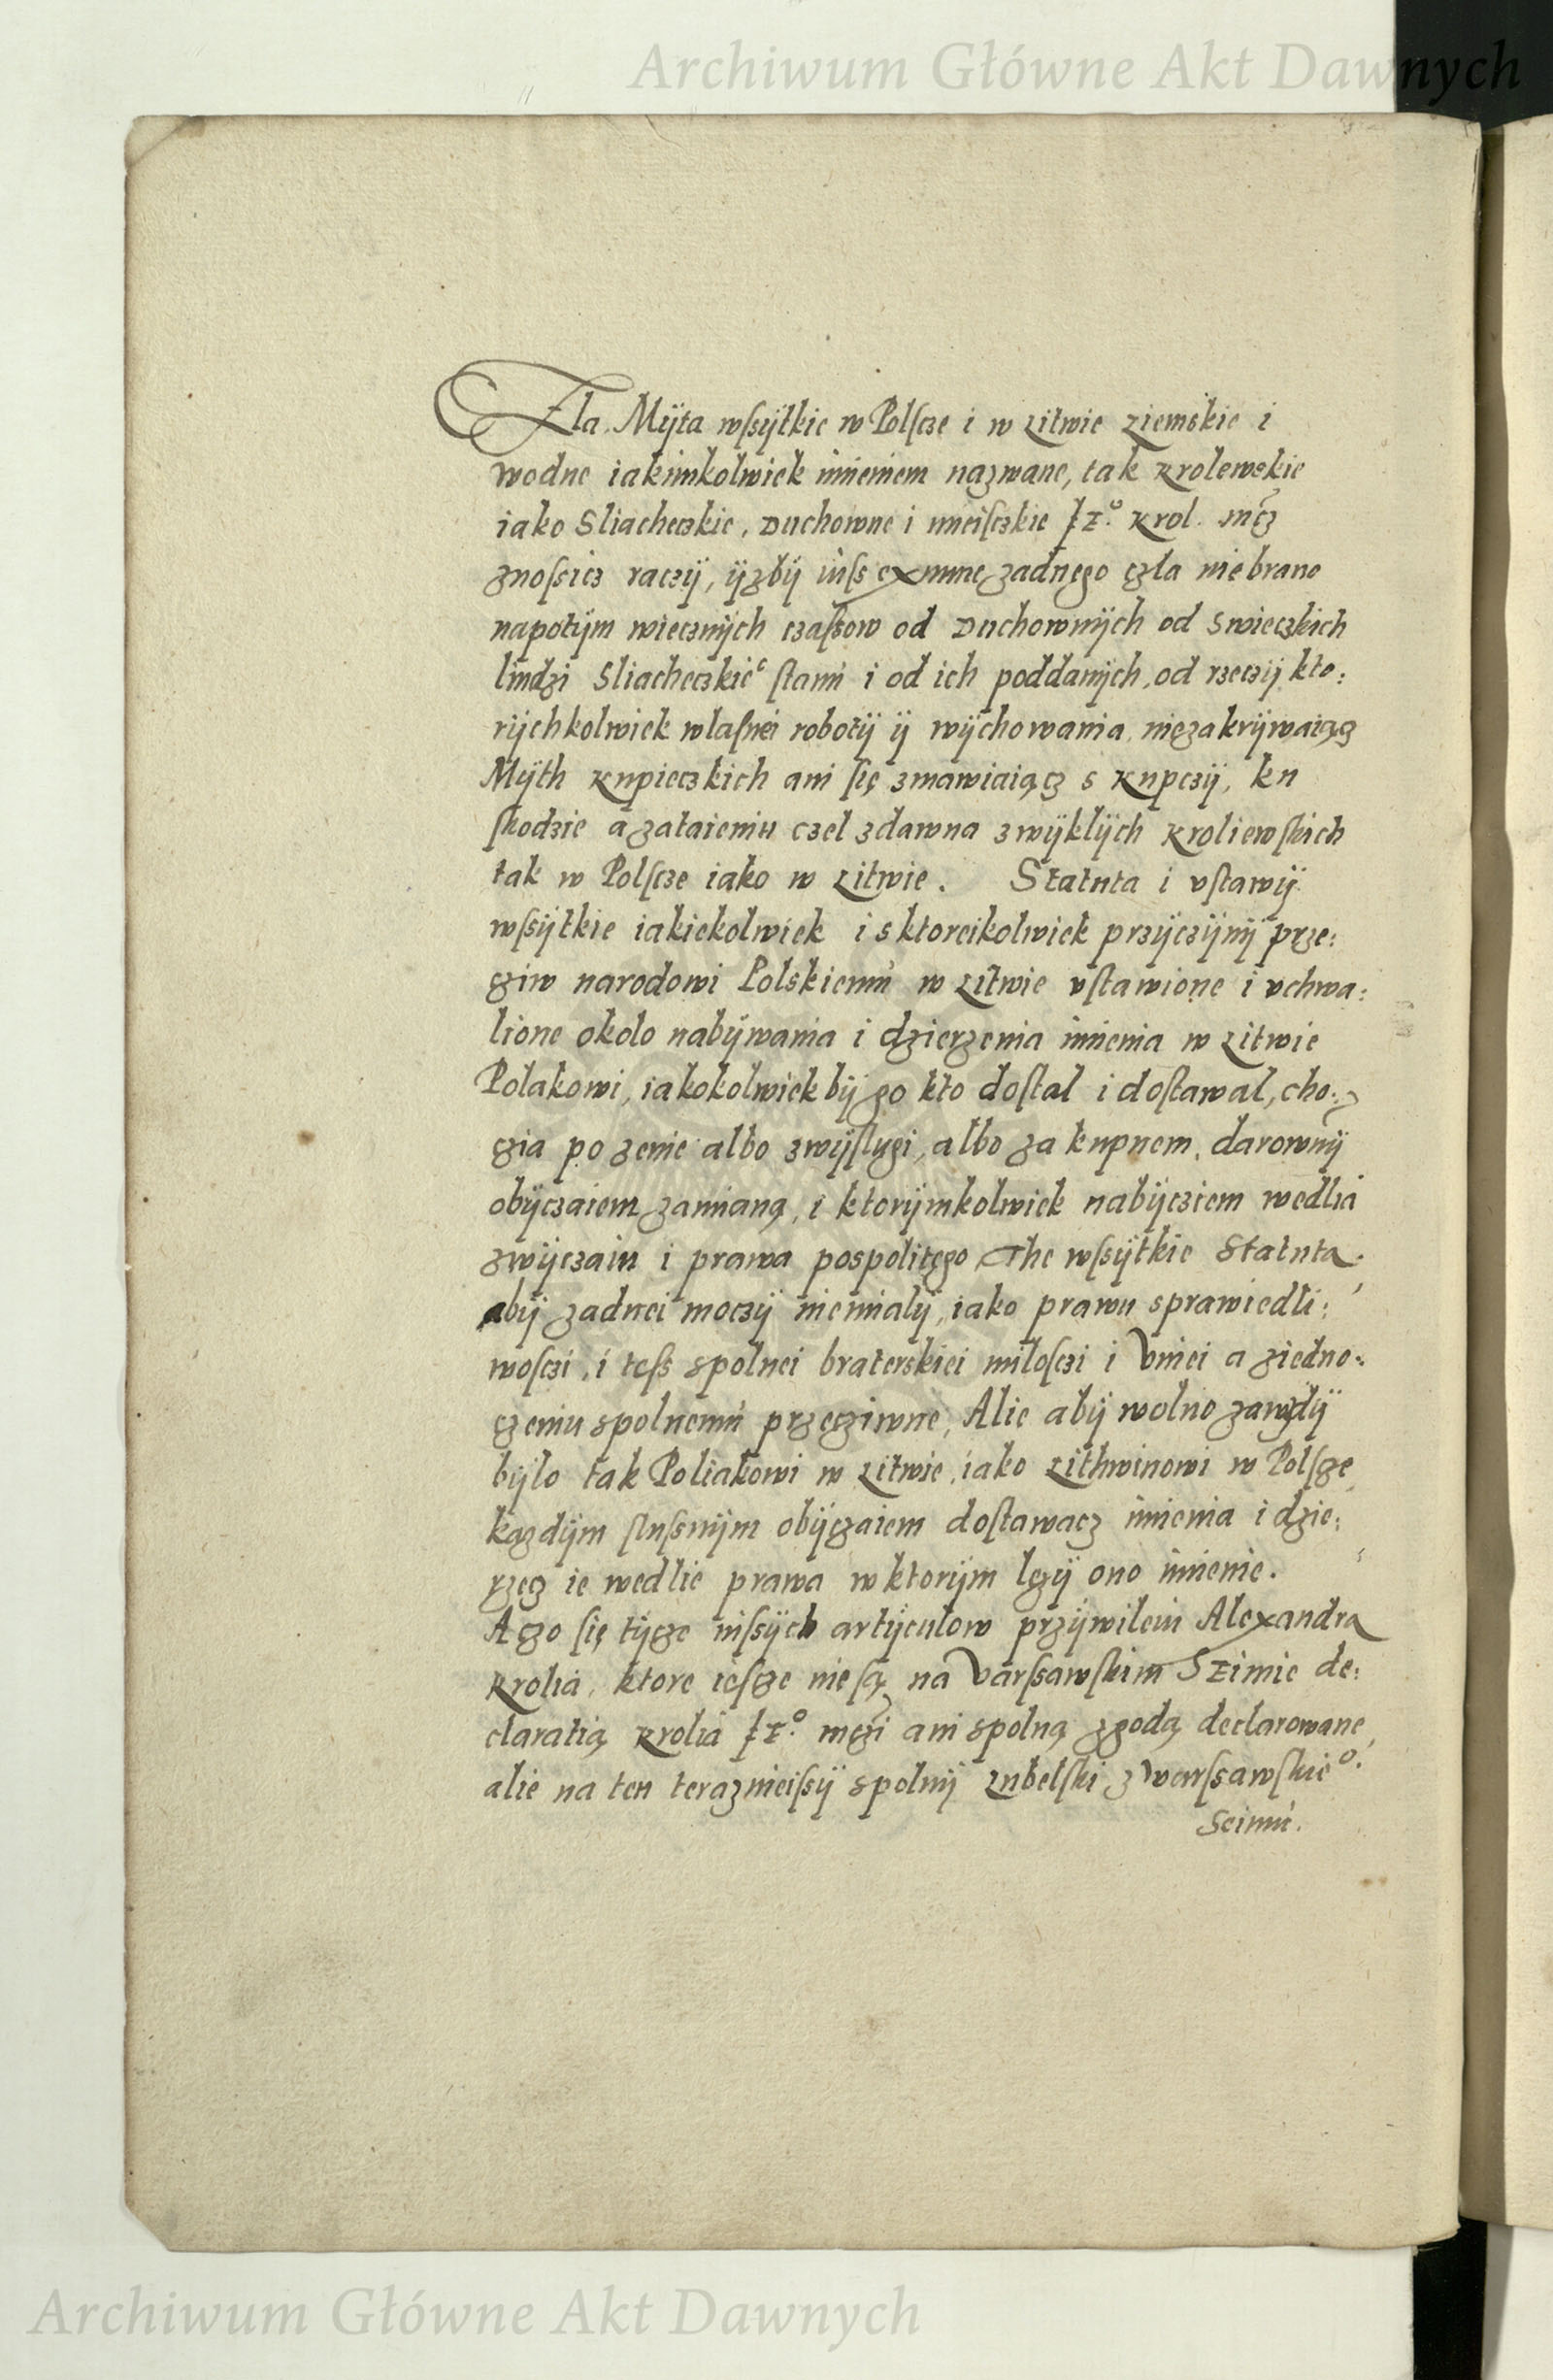 Archiwum Główne Akt Dawnych
Cżla, Mÿta wſsÿtkie w Polſcze i w Litwie ziemskie i
wodne iakimkolwiek imieniem nazwane, tak Krolewskie
iako Sliacheczkie, Duchowne i mieiſczkie Krol. mcz
znoſsicz raczÿ, ÿzbÿ iuſs exnunc zadnego czla niebrano
napotÿm wiecznÿch czaſsow od Duchownÿch od Swieczkich
liudzi Sliacheczkie ſtanu i od ich poddanÿch, od rzeczÿ kto:
rÿchkolwiek wlaſnei robotÿ ÿ wÿchowania, niezakrÿwaiącz
Mÿth Kupieczkich ani ſię zmawiaiącz s Kupczÿ, ku
ſkodzie a zataieniu czel zdawna zwÿklÿch Kroliewſkich
tak w Polſcze iako w Litwie. Statuta i vſtawÿ
wſsÿtkie iakiekolwiek i s ktoreikolwiek przÿczÿnÿ prze:
ciw narodowi Polskiemu w Litwie vſtawione i vchwa:
lione okolo nabÿwania i dzierzenia imienia w Litwie
Polakowi, iakokolwiek bÿ go kto doſtal i doſtawal, cho:
cia po zenie albo zwÿſlugi, albo za kupnem, darownÿ
obÿczaiem zamianą, i ktorÿmkolwiek nabÿcziem wedlia
zwÿczaiu i prawa pospolitego The wſsÿtkie Statuta
abÿ zadnei moczÿ niemialÿ, iako prawu sprawiedli:
woſczi, i teſs spolnei braterskiei miloſczi i Vniei a ziedno:
czeniu spolnemu przecziwne, Alie abÿ wolno zawzdÿ
bÿlo tak Poliakowi w Litwie, iako Lithwinowi w Polſcze
kazdÿm ſluſsnÿm obÿczaiem doſtawacz imienia i dzie:
rzecz ie wedlie prawa w ktorÿm lezÿ ono imienie.
A czo ſię tÿcze inſsÿch artÿculow przÿwileiu Alexandra
Krolia, ktore ieſcze nie ſą na Varſsawſkim Seimie de:
claratią Krolia mczi ani spolną zgodą declarowane,
alie na ten teraznieiſsÿ spolnÿ Lubelſki z Warſsawſkieº.
Seimu.
Archiwum Główne Akt Dawnych